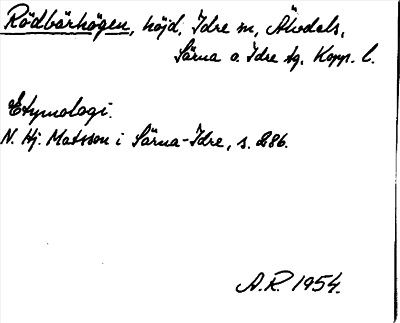 Rödbärhögen, höjd, Idre sn, Älvdals,
Särna o. Idre tg. Kopp. l.
Etymologi.
N. Hj. Matsson i Särna-Idre, s. 286.
A.R. 1954.